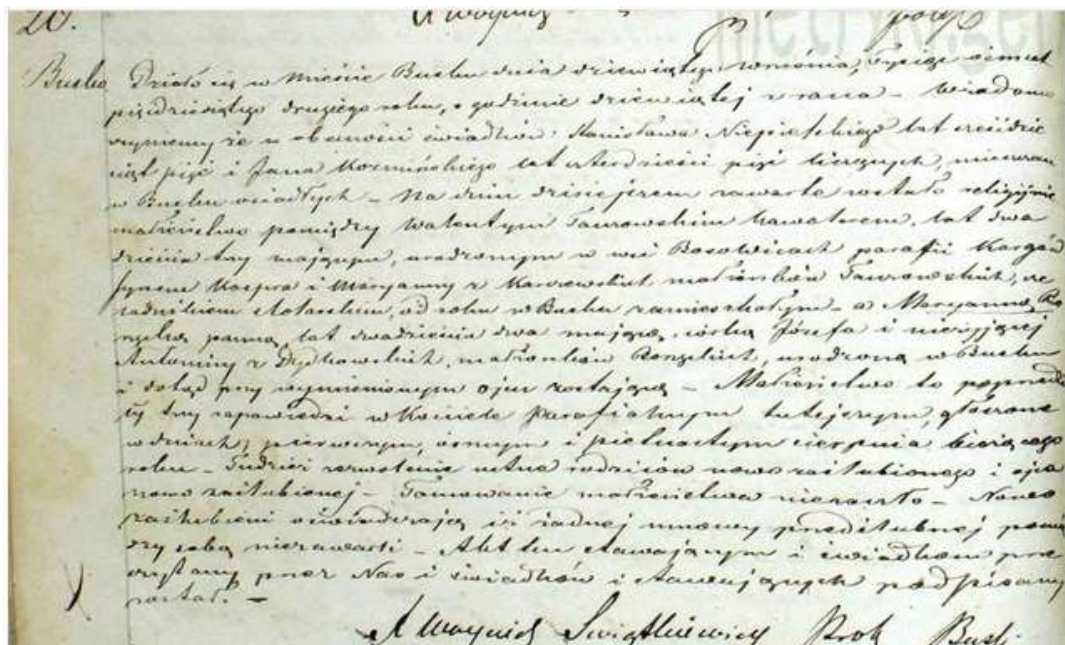 20.
Busko Działo się w Mieście Busku dnia dziewiątego września, tysiąc ośmset
pięćdziesiątego drugiego roku, o godzinie dziewiątej z rana – Wiadomo
czyniemy że w obecności świadków Stanisława lat trzydzie
ści pięć i Jana Kozmińskiego lat czterdzieści pięć liczących, mieszczan
w Busku osiadłych – Na dniu dzisiejszem zawarte zostało religijnie
małżeństwo pomiędzy Walentym Taurowskim kawalerem, lat dwa
dzieścia trzy mającym, urodzonym w wsi Bosowicach parafii Kargów
synem Kacpra i Maryanny z małżonków Taurowskich,
stolarskim, od roku w Busku zamieszkałym – a Maryanną
panną lat dwadzieścia dwa mającą, córką Józefa i nieżyjącej
Antoniny z małżonków urodzoną w Busku
i dotąd przy wymienionym ojcu zostającą – Małżeństwo to poprzedzi
ły trzy zapowiedzi w Kościele Parafialnym tutejszym, głoszone
w dniach, pierwszym, ósmym i piętnastym sierpnia bieżącego
roku – Tudzież zezwolenie ustne rodziców nowo zaślubionego i ojca
nowo zaślubionej – Tamowanie małżeństwa niezaszło – Nowo
zaślubieni oświadczają iż żadnej umowy przedślubnej pomię
dzy sobą niezawarli – Akt ten stawającym i świadkom prze
czytany przez Nas i świadków i stawających podpisany
został. –
X Swiątkiewicz Prob Busk.